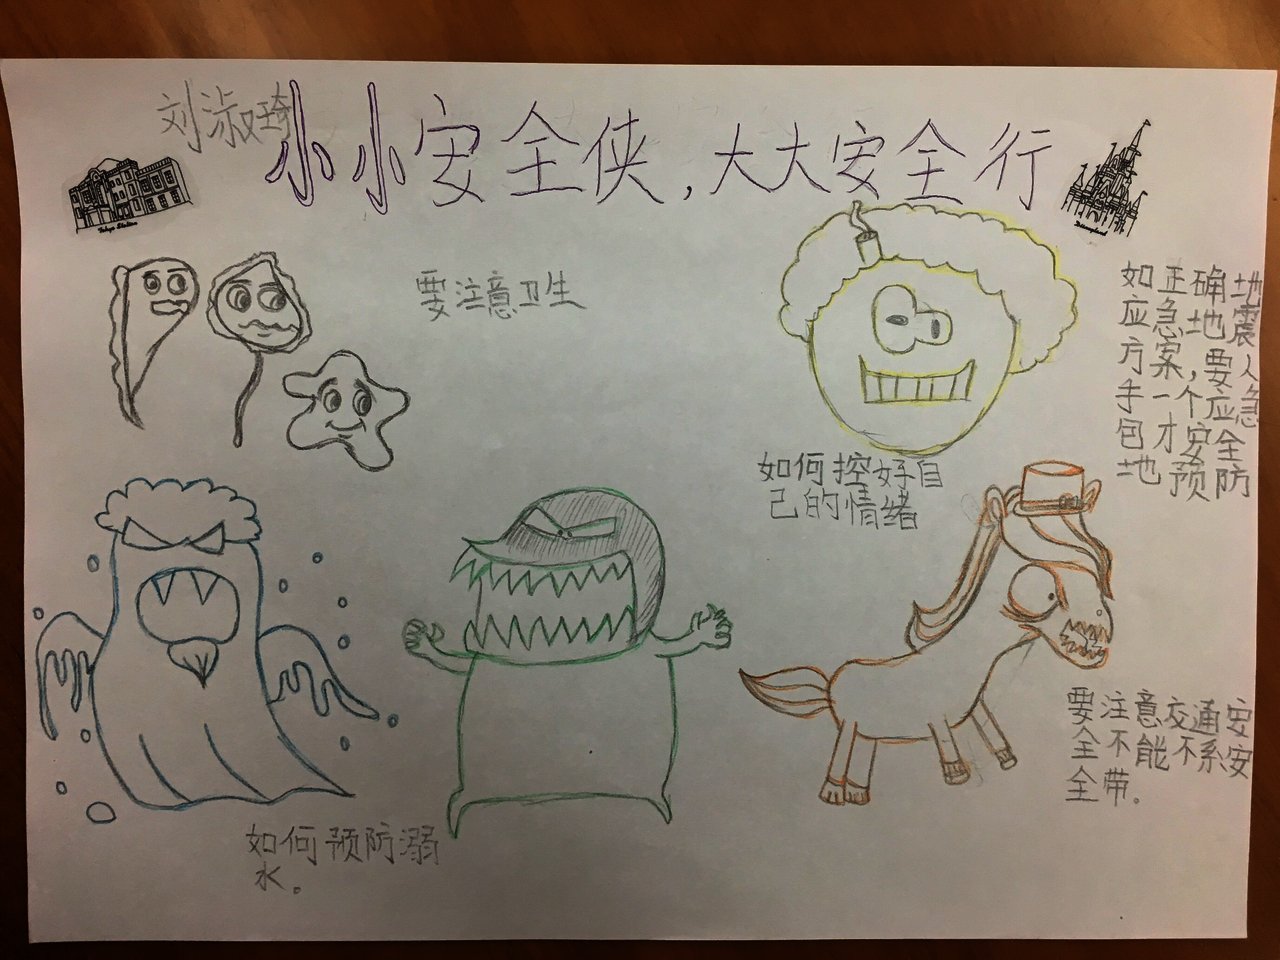 刘淑琦
小小安全侠,大大安全行
Tokyo Station
Disneyland
要注意卫生
如正确地
应急地震
方案,要人
手一个应急
包才安全
地预防
如何控好自
己的情绪
要注意交通安
全不能不系安
全带.
如何预防溺
水。